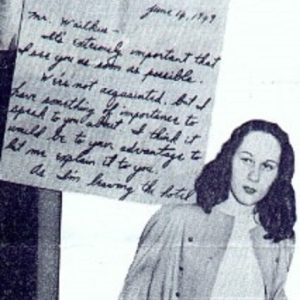 June 14, 1949
Mr. Waitkus —
It's extremely important that
I see you as soon as possible.
We're not acquainted, but I
have something of importance to
speak to you about. I think it
would be to your advantage to
let me explain it to you.
As I'm leaving the hotel